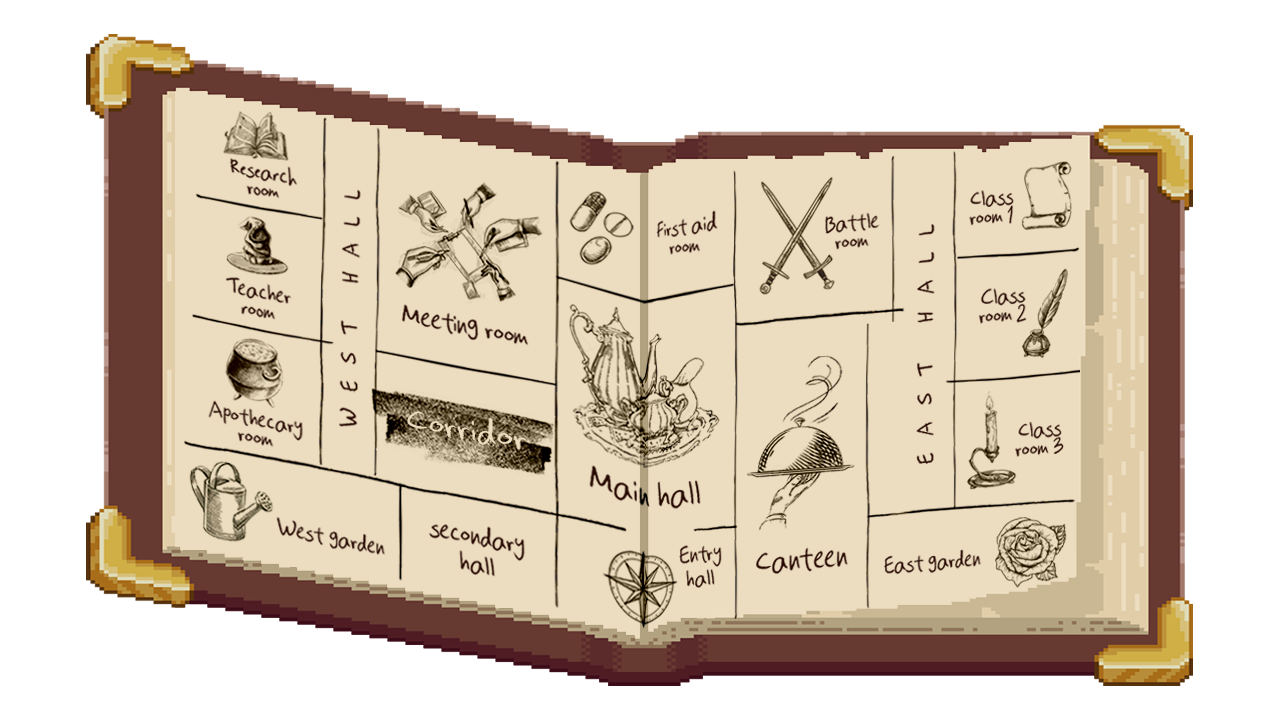 Research
room
Teacher
room
Apothecary
room
WEST HALL
Meeting room
Corridor
West garden
secondary
hall
First aid
room
Main hall
Entry
hall
Battle
room
Canteen
EAST HALL
Class
room 1
Class
room 2
Class
room 3
East garden